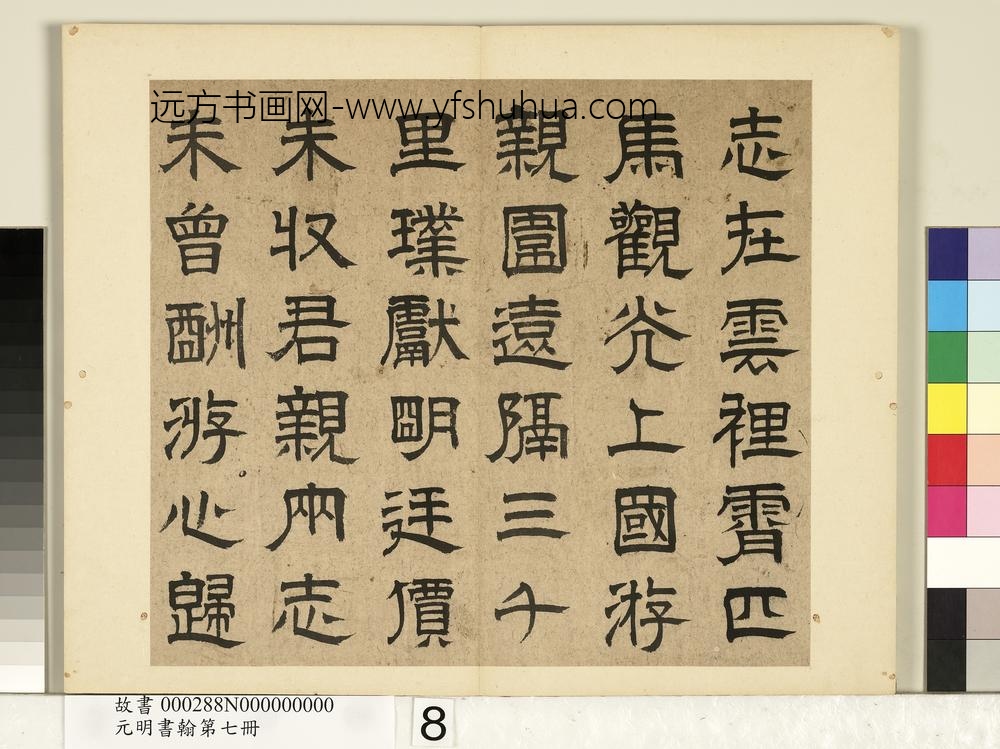 远方书画网-www.yfshuhua.com
志在雲裡霄匹
馬觀光上國游
親圍遠隔三千
里璞獻明廷價
未收君親兩志
未曾酬游心歸
故書 000288N000000000
元明書翰第七冊
8